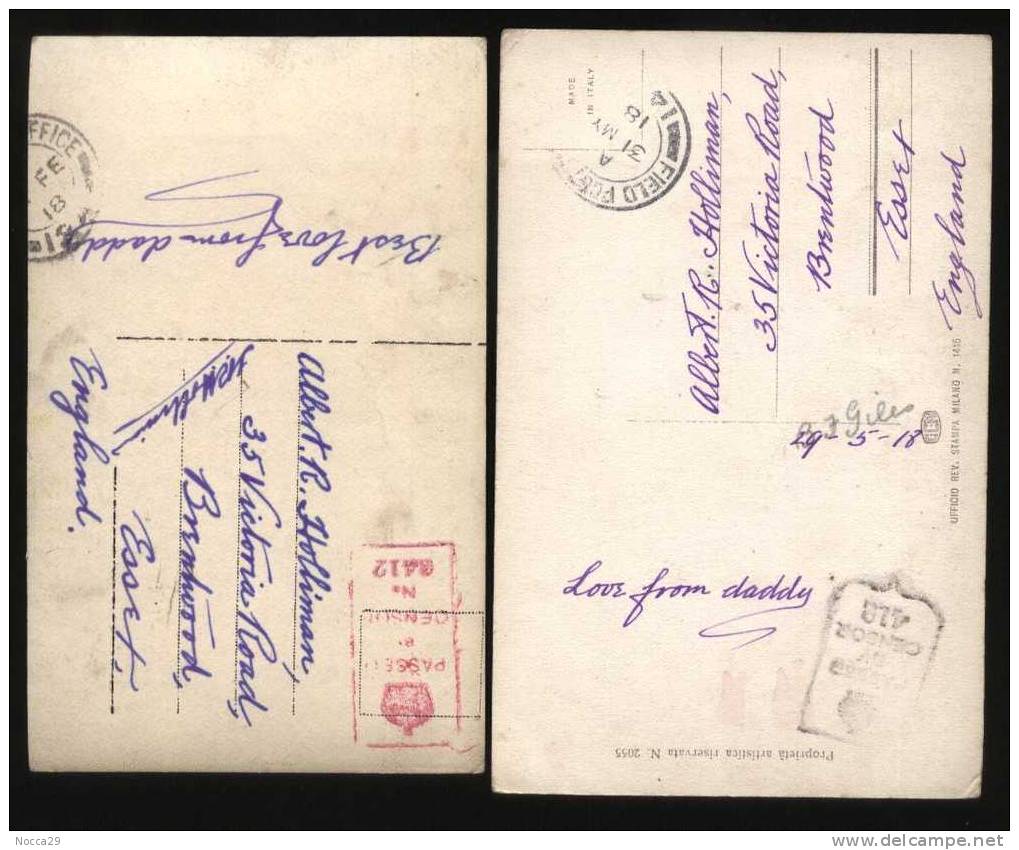 Best love from daddy
OFFICE
FE
18
Albert. R. Holliman,
35 Victoria Road,
Brentwood,
Essex,
England.
PASSED
BY
CENSOR
No
3412
FIELD POST
A
31 MY
18
14
MADE
IN ITALY
Albert. R. Holliman,
35 Victoria Road,
Brentwood
Essex
England
Giles
29-5-18
Love from daddy
BY
CENSOR
UFFICIO REV. STAMPA MILANO N. 1415
Proprietà artistica riservata N. 2055
Nocca29
delcampe.net